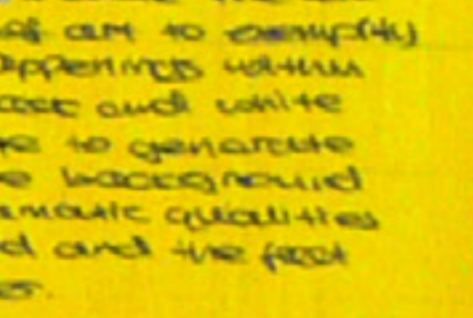 of art to exemplify
appenings within
and white
to generate
background
qualities
and the fact